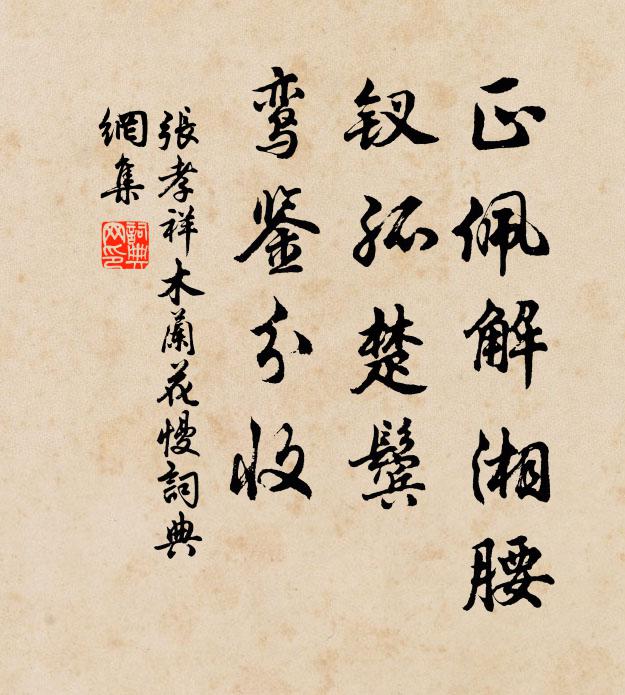 正佩解湘腰
钗孤楚鬓
鸾鉴分收
張孝祥木蘭花慢詞典
網集
詞典
网印